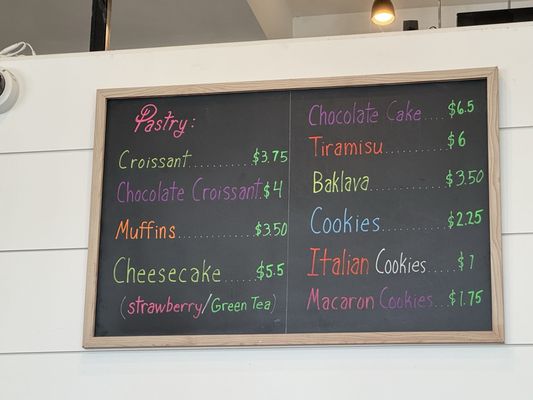 Pastry:
Croissant.......... $3.75
Chocolate Croissant. $4
Muffins............ $3.50
Cheesecake...... $5.5
(strawberry/Green Tea)
Chocolate Cake.... $6.5
Tiramisu............ $6
Baklava.............. $3.50
Cookies............ $2.25
Italian Cookies..... $1
Macaron Cookies... $1.75